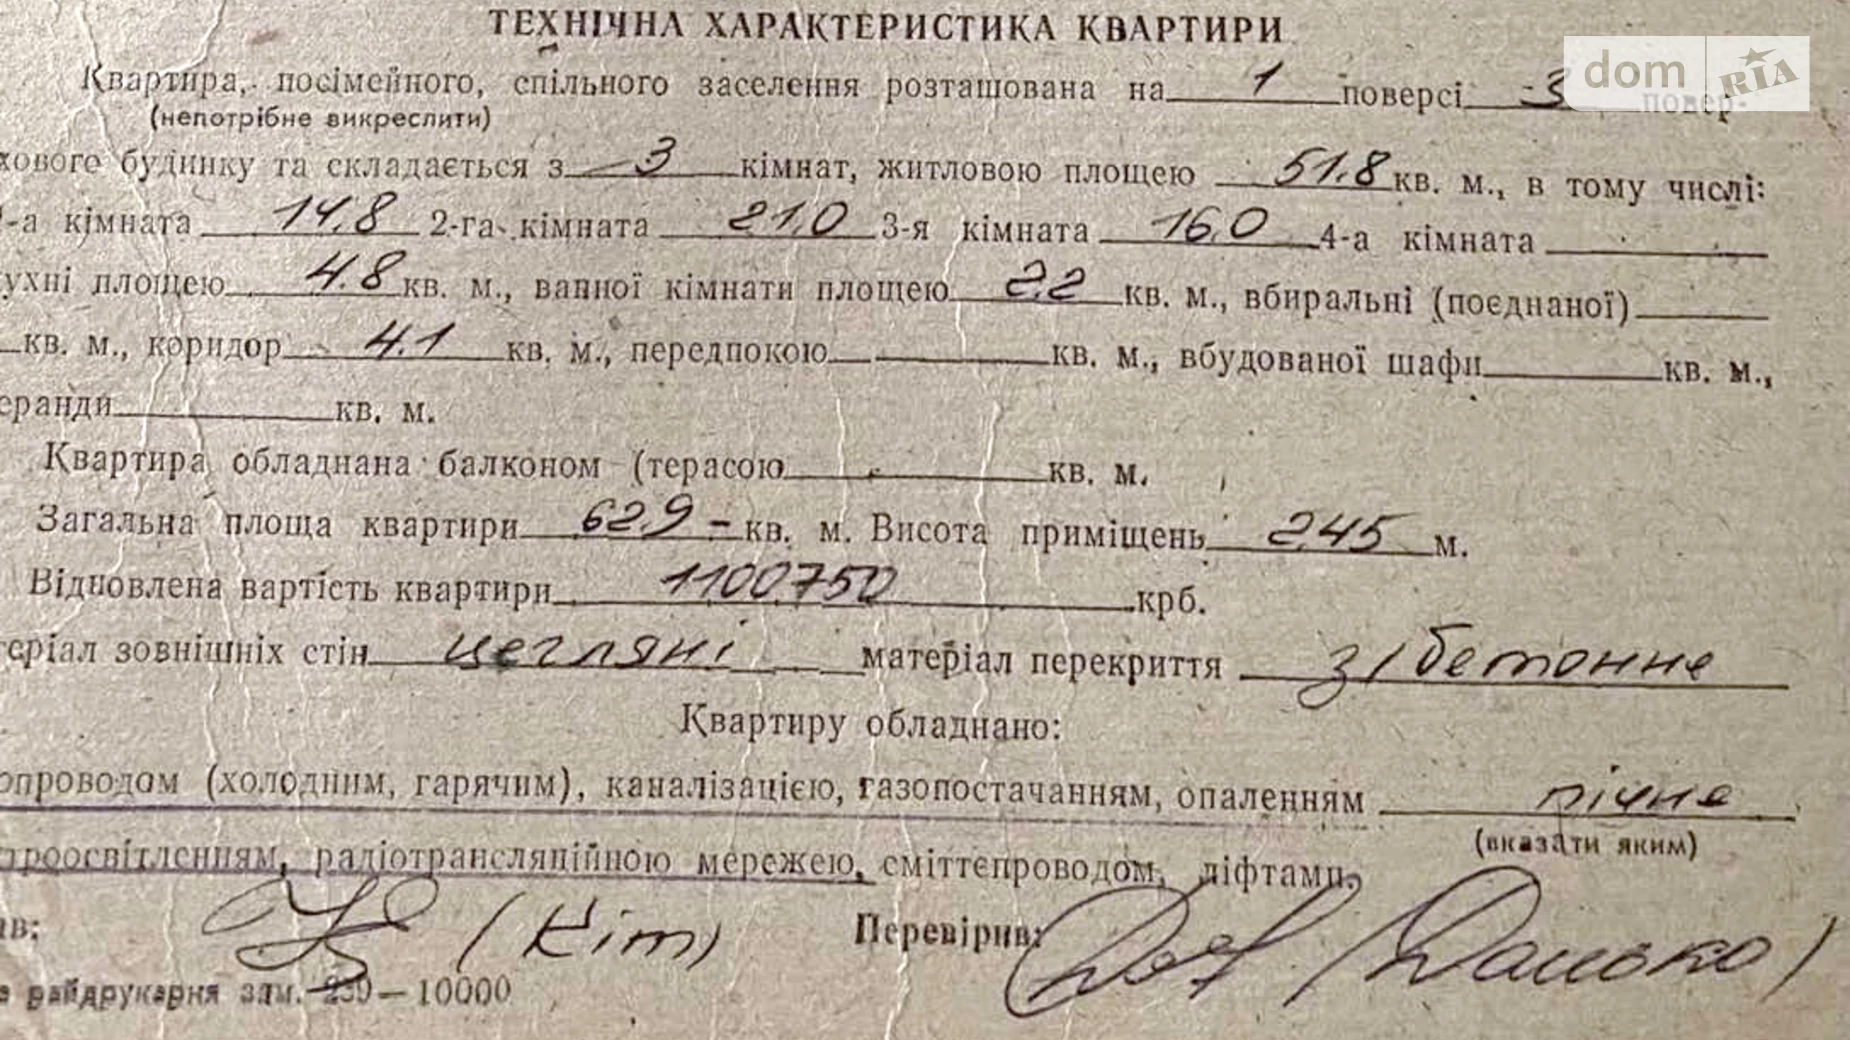 ТЕХНІЧНА ХАРАКТЕРИСТИКА КВАРТИРИ
dom RIA
Квартира, посімейного, спільного заселення розташована на 1 поверсі 3 повер-
(непотрібне викреслити)
хового будинку та складається з 3 кімнат, житловою площею 51.8 кв. м., в тому числі:
1-а кімната 14.8 2-га кімната 21.0 3-я кімната 16.0 4-а кімната
ухні площею 4.8 кв. м., ванної кімнати площею 2.2 кв. м., вбиральні (поєднаної)
кв. м., коридор 4.1 кв. м., передпокою кв. м., вбудованої шафи кв. м.,
еранди кв. м.
Квартира обладнана балконом (терасою кв. м.
Загальна площа квартири 62.9 - кв. м. Висота приміщень 2.45 м.
Відновлена вартість квартири 1100750 крб.
теріал зовнішніх стін цегляні матеріал перекриття з/бетонне
Квартиру обладнано:
опроводом (холодним, гарячим), каналізацією, газопостачанням, опаленням пічне
(вказати яким)
троосвітленням, радіотрансляційною мережею, сміттепроводом, ліфтами.
ив: (Кіт) Перевірив: (Данько)
райдрукарня зам. 239—10000